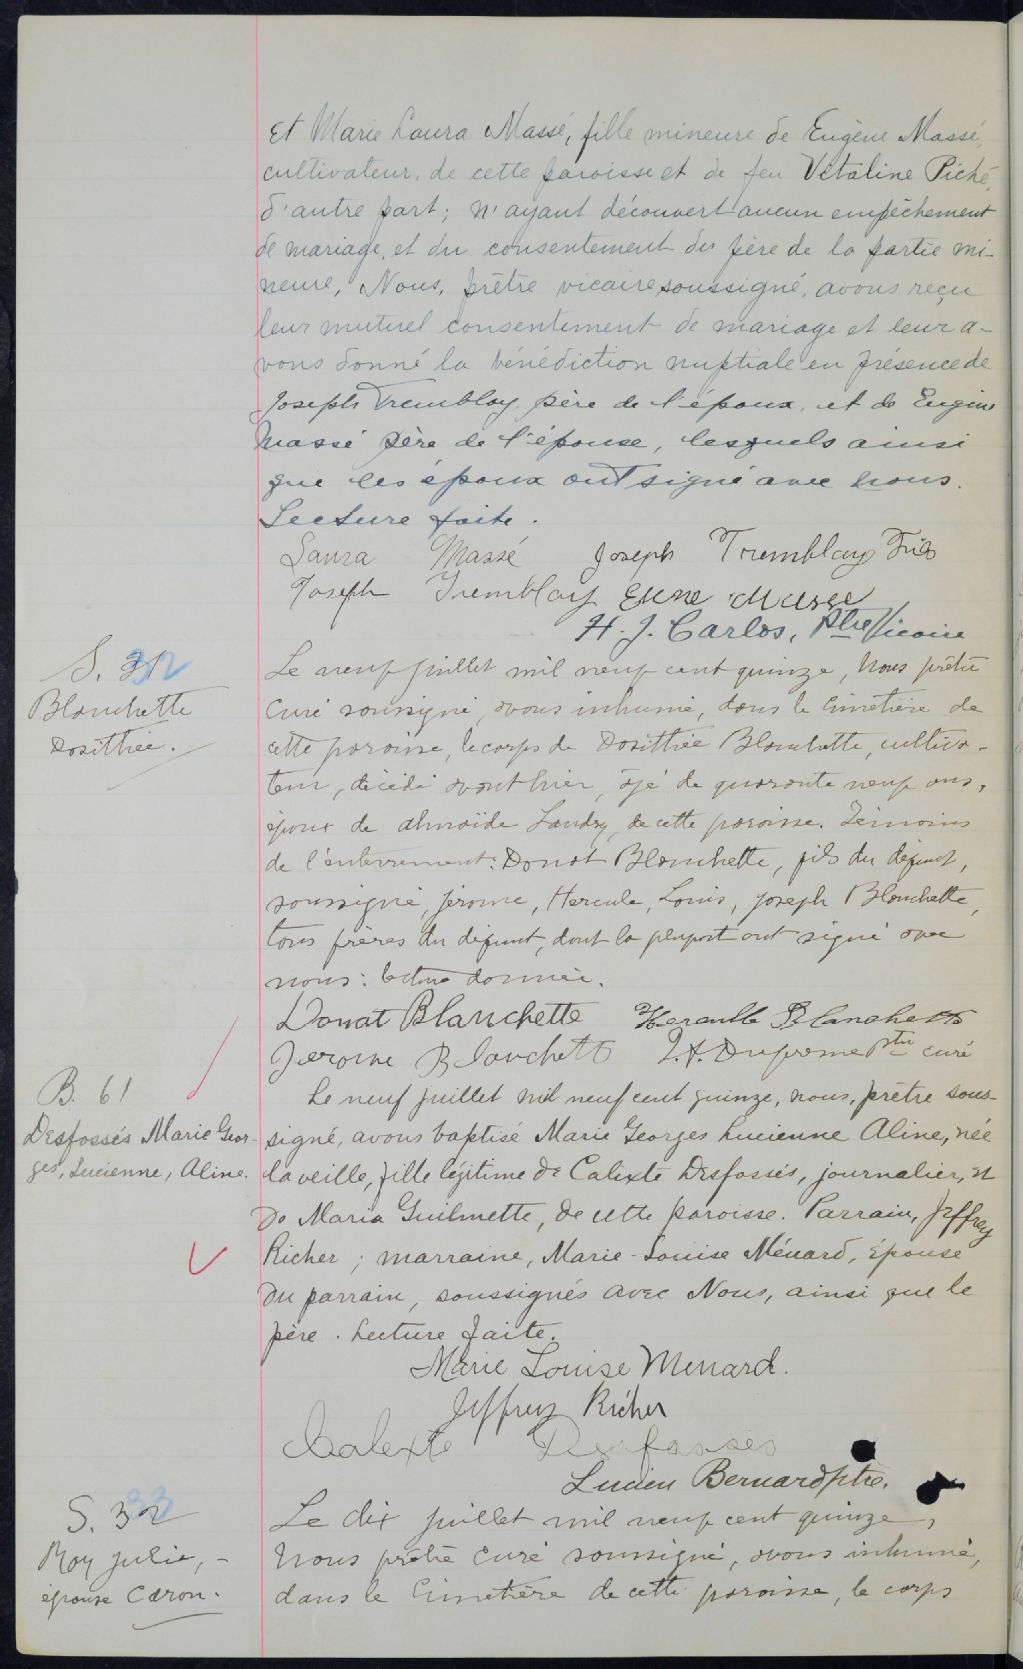 Et Marie Laura Massé, fille mineure de Eugène Massé,
cultivateur, de cette paroisse et de feu Vitaline Piché,
d'autre part; n'ayant découvert aucun empêchement
de mariage, et du consentement du père de la partie mi-
neure, Nous, prêtre vicaire soussigné, avons reçu
leur mutuel consentement de mariage et leur a-
vons donné la bénédiction nuptiale en présence de
Joseph Tremblay père de l'époux, et de Eugène
Massé père de l'épouse, lesquels ainsi
que les époux ont signé avec nous.
Lecture faite.
Laura Massé Joseph Tremblay Fils
Joseph Tremblay Massé
H. J. Carlos, Ptre Vicaire
S. 32
Blanchette
Dosithée.
Le neuf juillet mil neuf cent quinze, Nous prêtre
Curé soussigné, avons inhumé, dans le Cimetière de
cette paroisse, le corps de Dosithée Blanchette, cultiva-
teur, décédé avant hier, âgé de quarante neuf ans,
époux de Almaïde Landry, de cette paroisse. Témoins
de l'enterrement: Donat Blanchette, fils du défunt,
soussigné, Jérome, Hercule, Louis, Joseph Blanchette,
tous frères du défunt, dont la plupart ont signé avec
nous: lecture donnée.
Donat Blanchette Hercule Blanchette
Jerome Blanchette Ptre curé
B. 61
Desfossés Marie Geor-
ges, Lucienne, Aline.
Le neuf juillet mil neuf cent quinze, nous, prêtre sous-
signé, avons baptisé Marie Georges Lucienne Aline, née
la veille, fille légitime de Calixte Desfossés, journalier, et
de Maria Guilmette, de cette paroisse. Parrain, Jeffrey
Richer; marraine, Marie-Louise Ménard, épouse
du parrain, soussignés avec Nous, ainsi que le
père. Lecture faite.
Marie Louise Menard.
Jeffrey Richer
Calixte Desfosses
Lucien Bernard ptre.
S. 33
Roy Julie, -
épouse Caron.
Le dix juillet mil neuf cent quinze,
Nous prêtre Curé soussigné, avons inhumé,
dans le Cimetière de cette paroisse, le corps